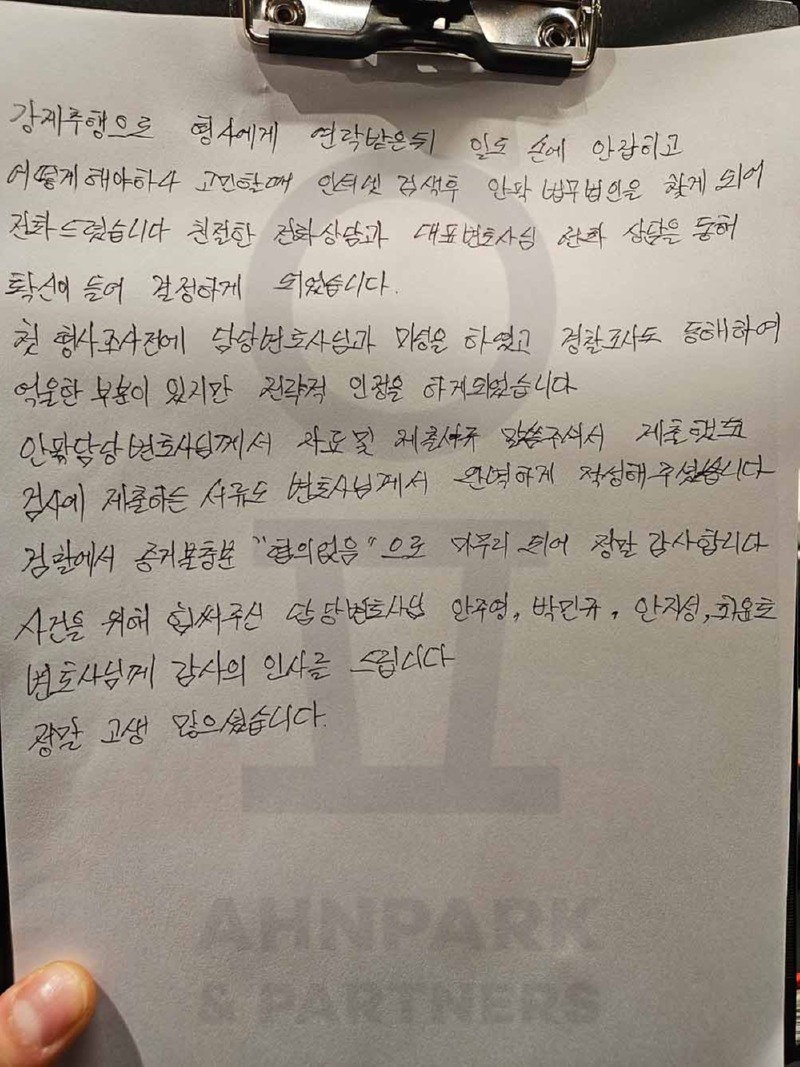 강제추행으로 형사에게 연락받은뒤 일도 손에 안잡히고
어떻게 해야하나 고민할때 인터넷 검색후 안팍 법무법인을 찾게 되어
전화드렸습니다 친절한 전화상담과 대표변호사님 전화 상담을 통해
확신이 들어 결정하게 되었습니다.
첫 형사조사전에 담당변호사님과 미팅을 하였고 경찰조사도 동행하여
억울한 부분이 있지만 전략적 인정을 하게되었습니다
안팍담당변호사님께서 자료및 제출서류 말씀주셔서 제출했고
검사에 제출하는 서류도 변호사님께서 완벽하게 작성해주셨습니다
검찰에서 증거불충분 "혐의없음"으로 마무리 되어 정말 감사합니다
사건을 위해 힘써주신 담당변호사님 안주영, 박민규, 안지성, 최윤호
변호사님께 감사의 인사를 드립니다
정말 고생 많으셨습니다.
AHNPARK
& PARTNERS